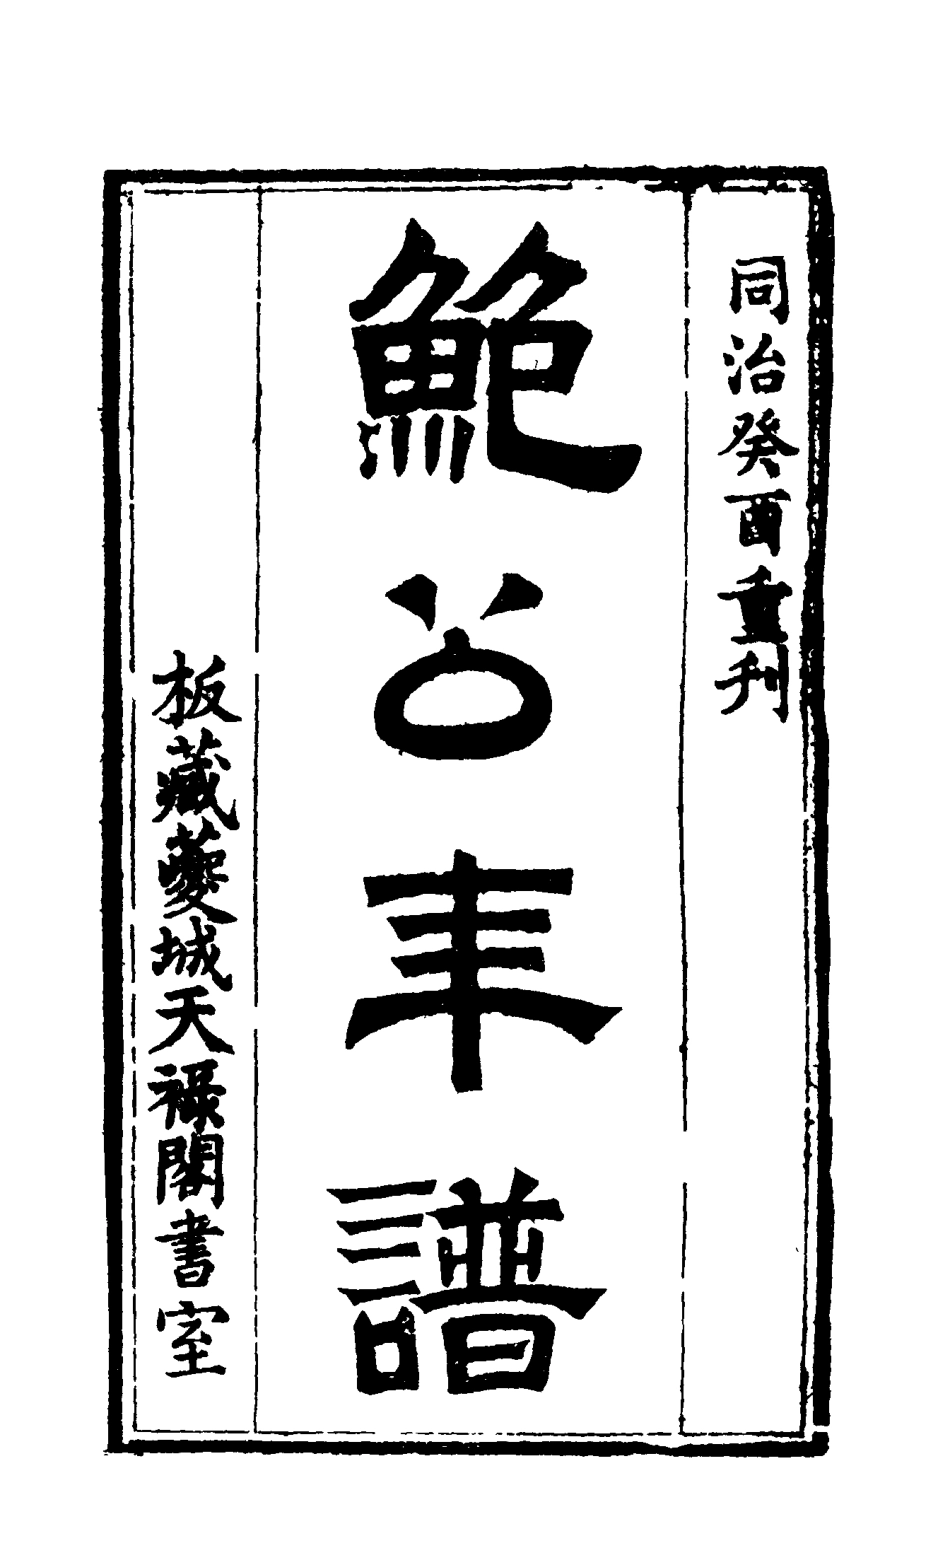 同治癸酉重刋
鮑公年譜
板藏夔城天祿閣書室